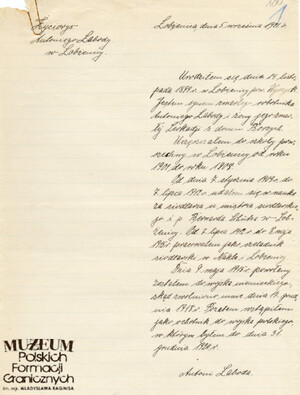 Życiorys
Antoniego Labody
w Łobżenicy
Łobżenica dnia 5 września 1921 r.
Urodziłem się dnia 14 listo
pada 1894 r. w Łobżenicy pow. Wyrzysk.
Jestem synem zmarłego robotnika
Antoniego Labody i żony jego zmar
łej Leokadji z domu
Uczęszczałem do szkoły pow
szechnej w Łobżenicy od roku
1901 do roku
Od dnia 7 stycznia 1909 do
7 lipca 1912 udałem się w naukę
za siodlarza u mistrza siodlarskie
go ś. p. Bernarda w Łob
żenicy. Od 7 lipca 1912 do 8 maja
1915 pracowałem jako czeladnik
siodlarski w Nakle i Łobżenicy.
Dnia 9 maja 1915 powołany
zostałem do wojska niemieckiego,
skąd zwolniono mnie dnia 19 gru
dnia 1918 r. Potem wstąpiłem
jako ochotnik do wojska polskiego
w którym byłem do dnia 31
grudnia 1920 r.
Antoni Laboda.
MUZEUM
Polskich
Formacji
Granicznych
im. mjr. WŁADYSŁAWA RAGINISA